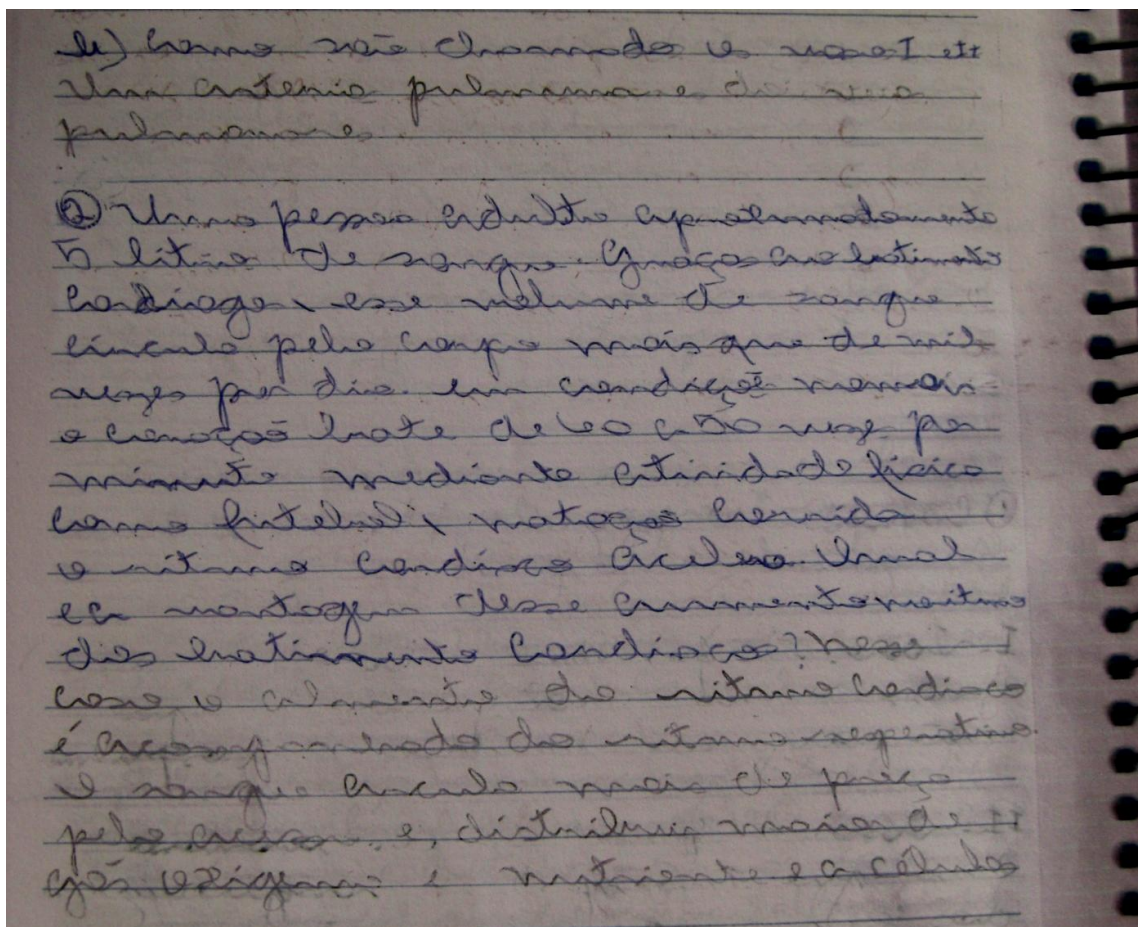 b) Como são chamado os vaso I e II
Uma arteria pulmonar e da veia
pulmonare
② Uma pessoa adulta aproximadamente
5 litros de sangue. Graças aos batimento
cardiago, esse volume de sangue
circula pelo corpo mais que de mil
vezes por dia. em condiçoẽ normais
o coração bate de 60 a 80 veze por
minuto mediante atividade fisica
como futebol, natação corrida
o ritmo cardiaco acelera. Qual
e a vantagem desse aumento no ritmo
dos batimento cardiaco? Nesse
caso o almento do ritmo cardiaco
é acompanhado do ritmo respiratorio.
O sangue circula mais de
pelo e, distribui maior de
gás oxigenio e nutriente e a células